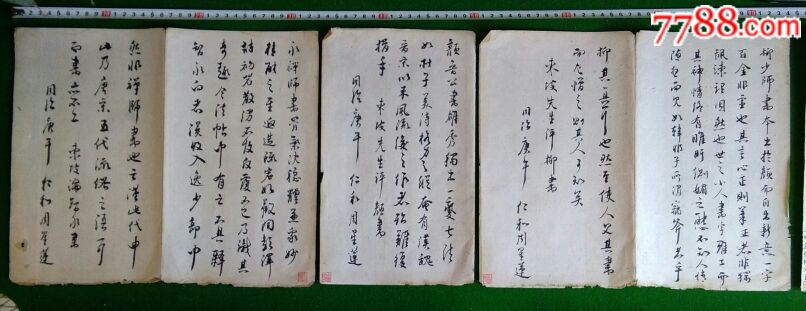 7788.com
中国收藏热线
柳少師書本出於顏而自出新意一字
百金非虛也其言心正則筆正者非獨
諷諫理固然也世之小人書字雖工而
其神情終有睢盱側媚之態不知人情
隨想而見如韓非子所謂竊斧者乎
抑其真爾也然至使人見其書
而尤憎之則其人可知矣
東坡先生評柳書
同治庚午 仁和周星蓮
顏魯公書雄秀獨出一變古法
如杜子美詩格力天縱奄有漢魏
晉宋以來風流後之作者殆難復
措手 東坡先生評顏書
同治庚午 仁和周星蓮
永禪師書骨氣深穩體兼眾妙
精能之至反造疏淡如觀陶彭澤
詩初若散緩不收反覆不已乃識其
奇趣今法帖中有云不具釋
智永白者誤收入逸少部中
然亦非禪師書也云謹此代申
此乃唐末五代流俗之語耳
而書亦不工 東坡論智永書
同治庚午 仁和周星蓮